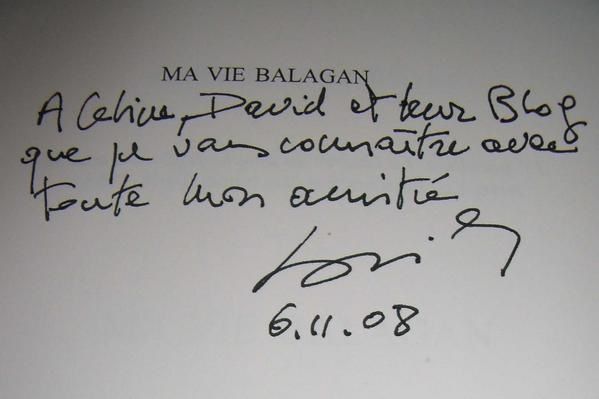 MA VIE BALAGAN
A Celine, David et leur Blog
que je vais connaître avec
toute mon amitié
6.11.08